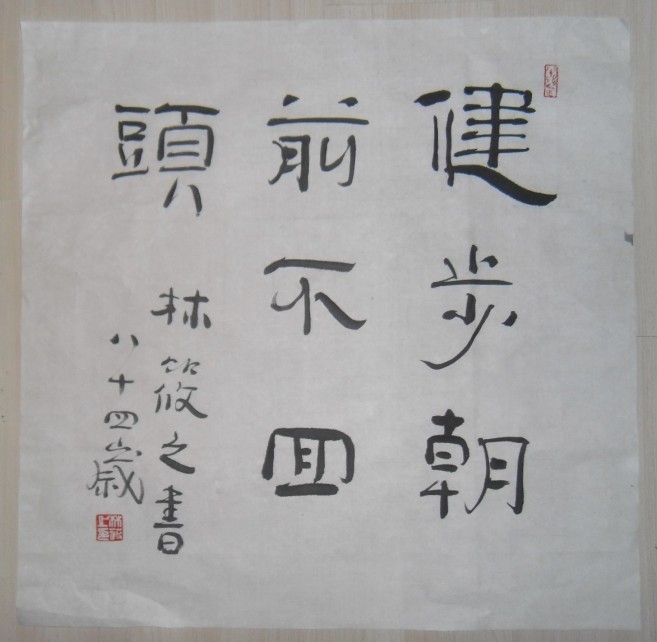 健步朝
前不回
頭
林筱之書
八十四歲